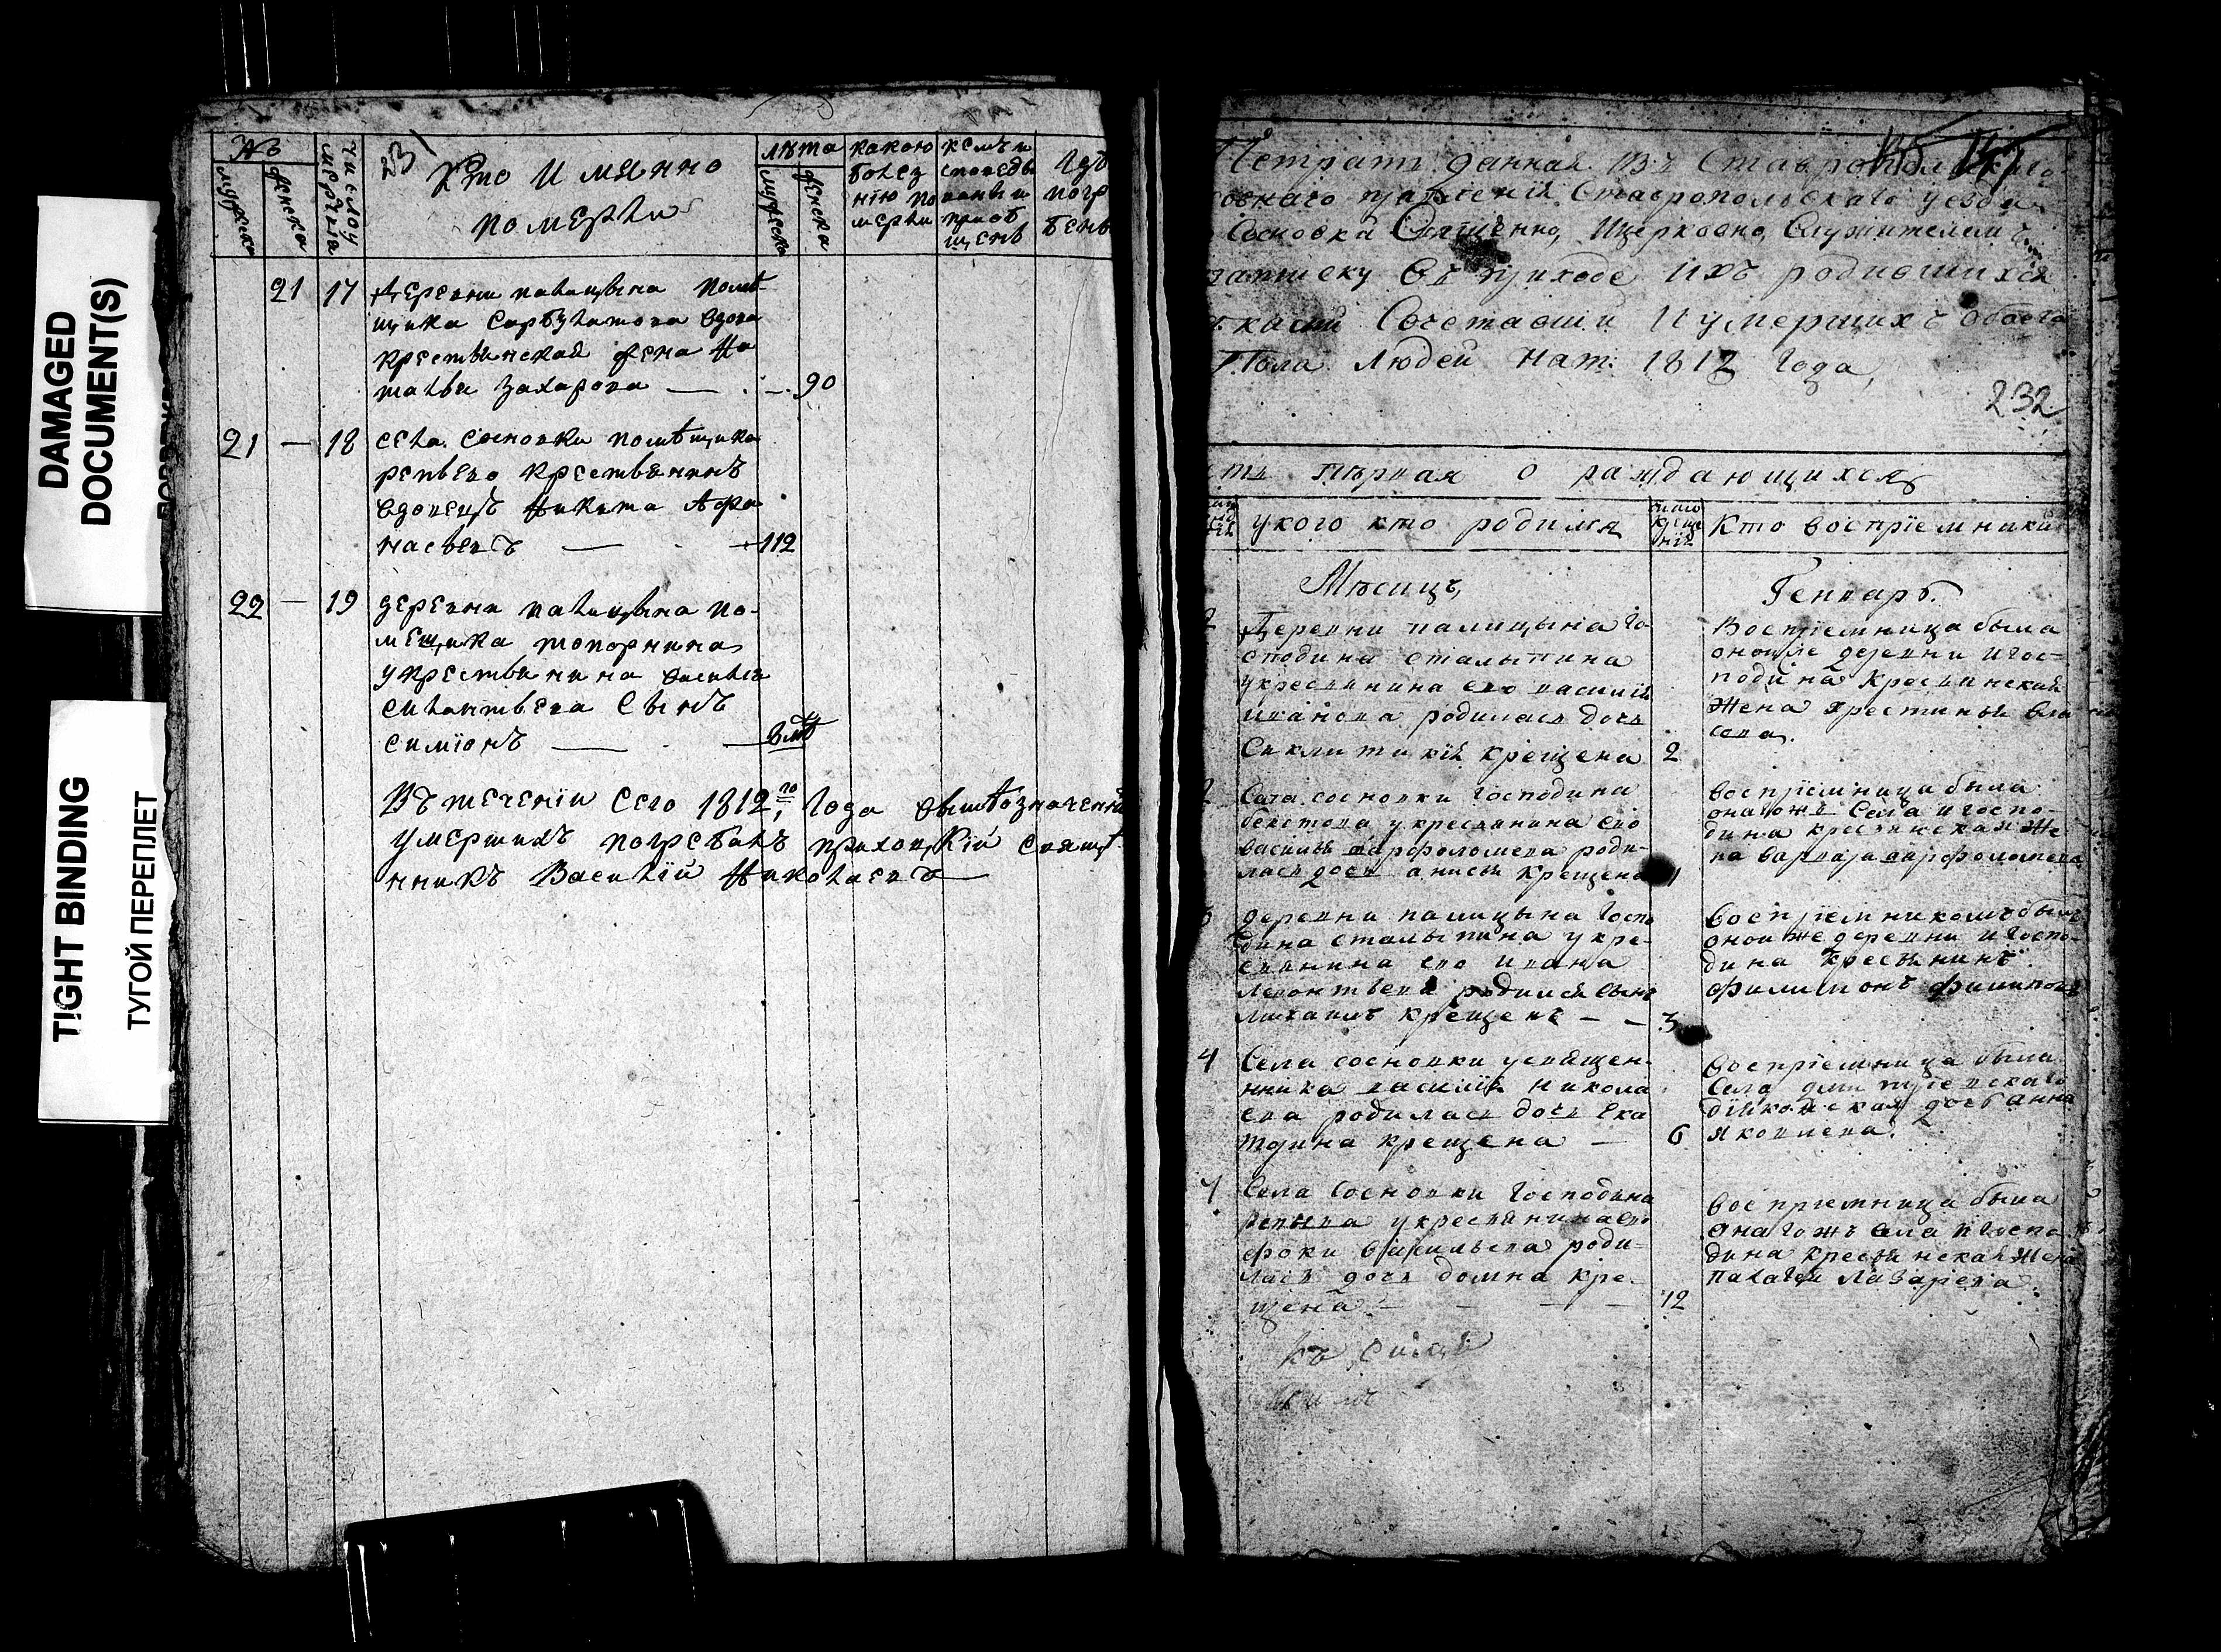 DAMAGED
DOCUMENT(S)
TIGHT BINDING
ТУГОЙ ПЕРЕПЛЕТ
№
мужеска
женска
число у
мертвiя
231
Кто Именно
померли
лѣта
мужеска
женска
какою
болез
нiю по
мерли
кемъ и
споведы
ваны и
приоб
щенъ
Гдѣ
погр
бенъ
21 17 Деревни палицына помѣ
щика Сарбулатова вдова
крестьянская жена На
талья Захарова — 90
21 — 18 села Сосновки помѣщика
репьева крестьянинъ
вдовецъ Никита Афа
насьевъ — 112
22 — 19 деревни палицына по-
мещика топорнина
укрестьянина василья
силантьева Сынъ
симiонъ —
Въ теченiи Сего 1812го Года вышѣозначенны
умершихъ погребалъ приходскiй свящѣ-
нникъ Василiй Николаевъ
Тетрать данная Изъ Ставропольскаго
овнаго правленiя Ставропольскаго уезда
Сосновка Священно, Ицерковно, Служителемъ
записку въ приходе Ихъ родившихся
Сочетавши Иумершихъ обоего
Пола людей на 1812 Года
232
первая о раждающихся
укого кто родился
число
креще
нiя
Кто воспрiемники
Мѣсяцъ
Генварь
Деревни палицына Го-
сподина сталыпина
укресьянина ево василiя
иванова родилась дочь
Сиклитикiя крещена 2
Воспрiемница была
оной же деревни игос-
подина кресьянская
жена хрестинья вла
сова.
Села сосновки господина
бекетова укресьянина ево
василья варфоломева роди-
лась дочь анисья крещена 1
воспрiемница была
оногожъ села игоспо-
дина кресьянская же
на варвара варфоломева
деревни палицына Госпо
дина сталыпина укре-
сьянина ево ивана
леонтьева родился сынъ
михаилъ крещенъ — — 3
воспрiемникомъ былъ
оной же деревни игоспо-
дина кресьянинъ
филимонъ филиповъ
4 Села сосновки усвящен-
нника василiя никола
ева родилась дочь Ека
терина крещена — 6
воспрiемница была
села дмитрiевскаго
дьяконская дочь анна
яковлева.
7 Села Сосновки Господина
репьева укресьянина ево
фоки васильева роди-
лась дочь домна кре-
щена — — — 12
воспрiемница была
оногожъ села игоспо
дина кресьянская жена
палагея лазарева.